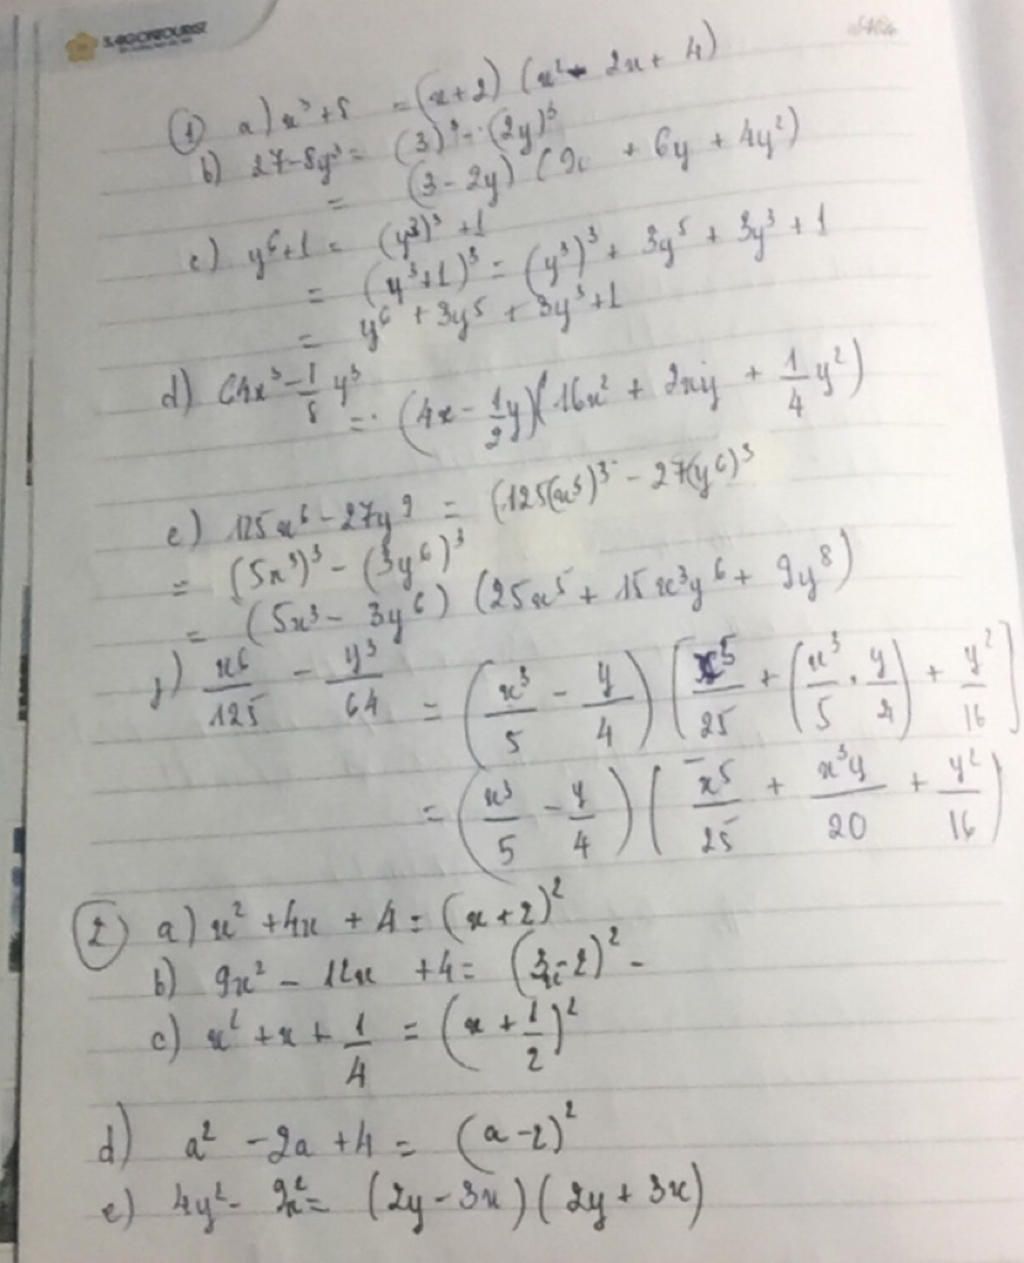 SAIGONTOURIST
① a) x³ + 8 = (x+2) (x² - 2x + 4)
b) 27 - 8y³ = (3)³ - (2y)³
= (3 - 2y) (9 + 6y + 4y²)
c) y⁶ + 1 = (y³)³ + 1
= (y³+1)³ = (y³)³ + 3y⁵ + 3y³ + 1
= y⁶ + 3y⁵ + 3y³ + 1
d) 64x³ - 1/8 y³ = (4x - 1/2 y)(16x² + 2xy + 1/4 y²)
e) 125x⁶ - 27y⁹ = (125(x³)³ - 27(y⁶)³
= (5x³)³ - (3y⁶)³
= (5x³ - 3y⁶) (25x⁵ + 15x³y⁶ + 9y⁸)
f) x⁶/125 - y³/64 = (x³/5 - y/4) [x⁵/25 + (x³/5 . y/4) + y²/16]
= (x³/5 - y/4) (x⁵/25 + x³y/20 + y²/16)
② a) x² + 4x + 4 = (x + 2)²
b) 9x² - 12x + 4 = (3x - 2)² -
c) x² + x + 1/4 = (x + 1/2)²
d) a² - 2a + 4 = (a - 2)²
e) 4y² - 9x² = (2y - 3x) (2y + 3x)